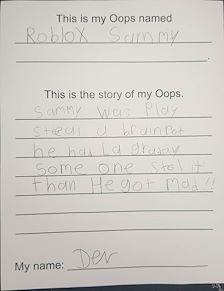 This is my Oops named
Roblox Sammy
This is the story of my Oops.
Sammy was Play
steeal a brainrot
he had La
some one stol it
than He got mad !!
My name: Dev